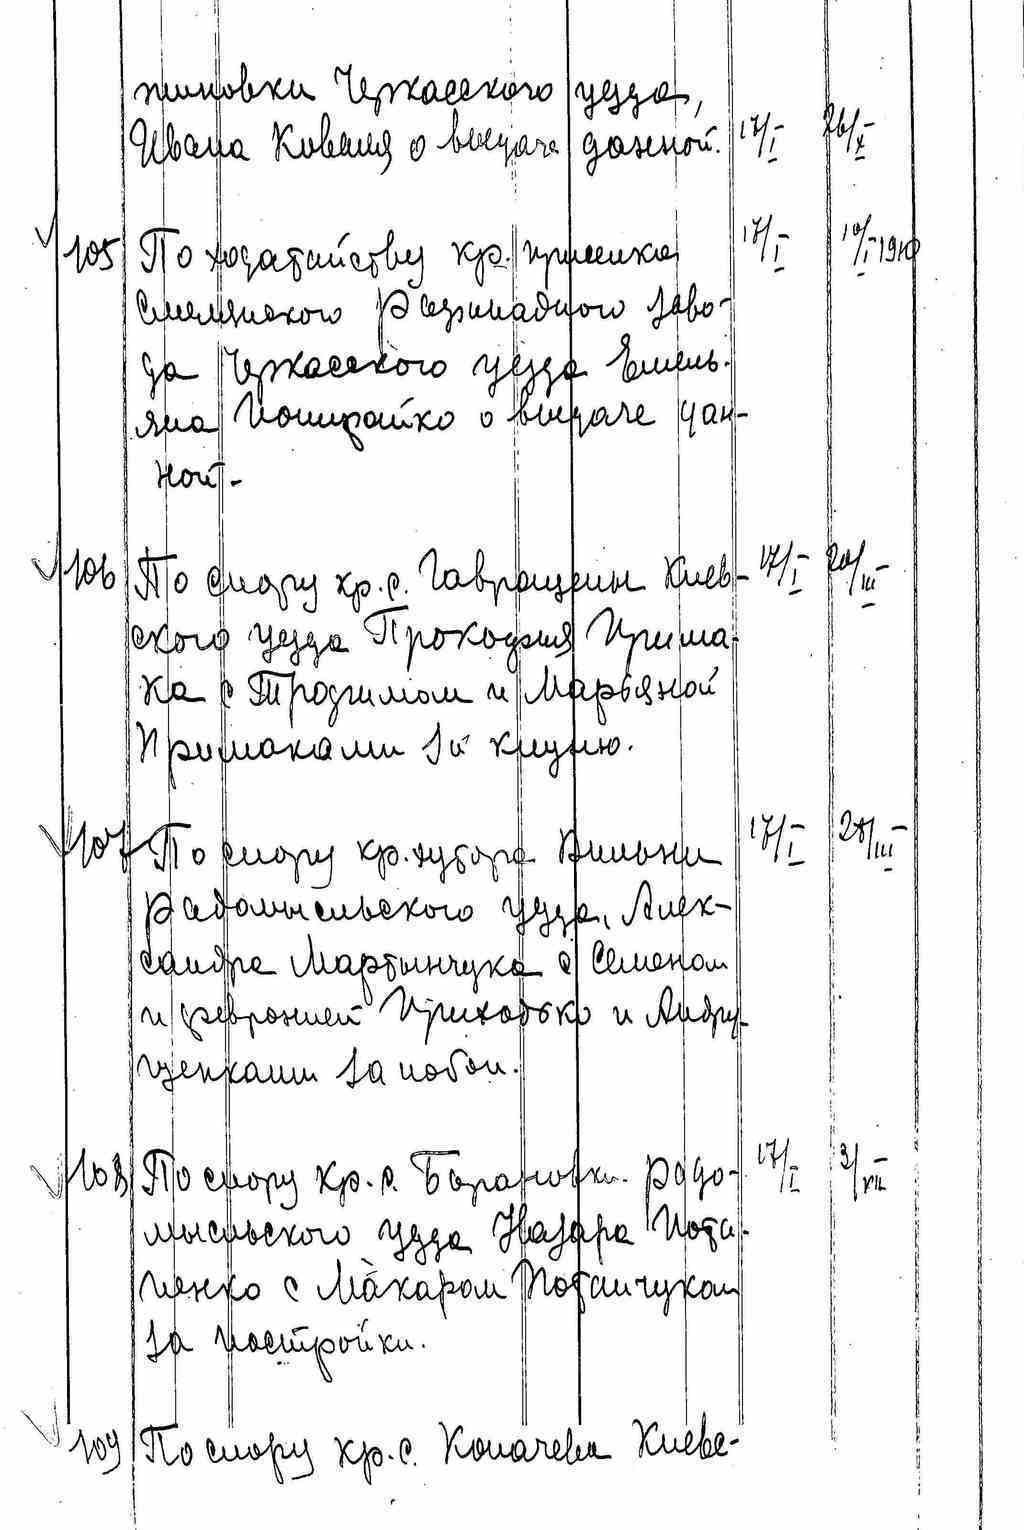 тиновки Черкасского уезда,
Ивана Коваля о выдаче данной. 17/I – 26/X –
105 По ходатайству кр. приселка 17/I – 10/I 1910
Смелянского Рафинадного заво-
да Черкасского уезда Емель-
яна о выдаче дан-
ной.-
106 По спору кр. с. Гаврищены Киев- 17/I – 20/III –
ского уезда Прокофия Прима-
ка с Трофимом и Марьяной
Примаками за клуню.
107 По спору кр. хутора Вильни 17/I – 28/III –
Радомысльского уезда, Алек-
сандра Мартынчука с Семеном
и Февронией Приходько и Андру-
щенками за побои.
108 По спору кр. с. Барановки Радо- 17/I – 3/XII –
мысльского уезда Назара Пота-
пенко с Макаром Потапчуком
за постройки.
109 По спору кр. с. Копачева Киевс-